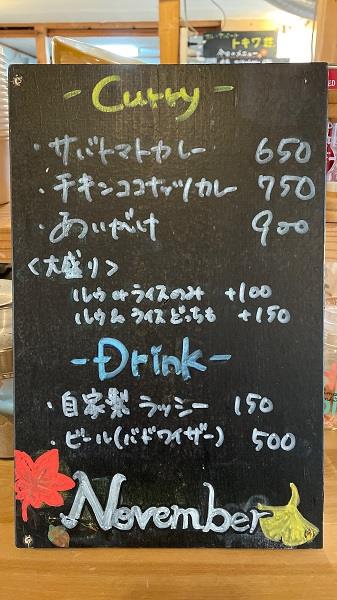 カレースタンド
トキワ荘
今日のメニュー
- Curry -
・サバトマトカレー 650
・チキンココナッツカレー 750
・あいがけ 900
<大盛り>
ルウ or ライスのみ +100
ルウ&ライスどっちも +150
- Drink -
・自家製ラッシー 150
・ビール(バドワイザー) 500
November